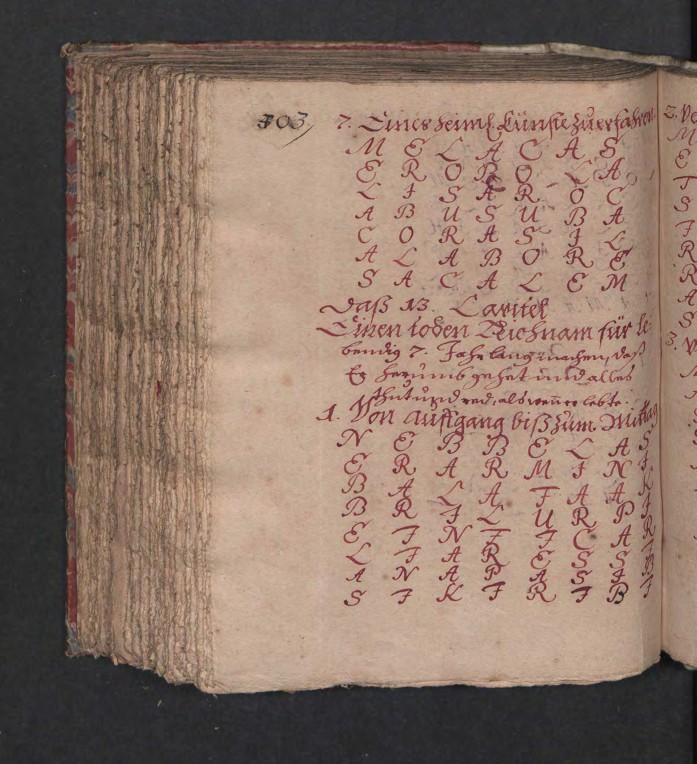 303
7. Eines heiml. Künste zu erfahren
M E L A C A S
E R O B O L A
L I S A R O C
A B U S U B A
C O R A S I L
A L A B O R E
S A C A L E M
Daß 13. Capitel
Einen toden Leichnam für le-
bendig 7. Jahr lang machen, daß
Er herumb gehet und alles
thut und red, als wenn er lebte.
1. Von auffgang biß zum Mittag
N E B B E L A S
E R A R M I N I
B A L A T A A K
B R I L U R P I
E I N T I C A R
L I A R E S S I
A N A P A S I B
S I K I R I B I